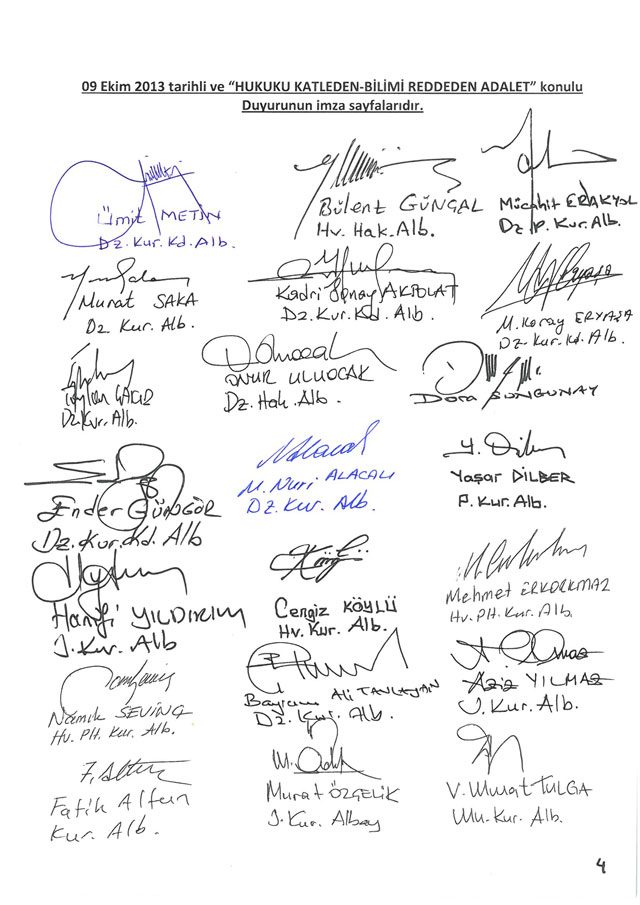 09 Ekim 2013 tarihli ve “HUKUKU KATLEDEN-BİLİMİ REDDEDEN ADALET” konulu
Duyurunun imza sayfalarıdır.
Ümit METİN
Dz. Kur. Kd. Alb.
Bülent GÜNÇAL
Hv. Hak. Alb.
Mücahit ERAKYOL
Dz. P. Kur. Alb.
Murat SAKA
Dz. Kur. Alb.
Kadri Sonay AKPOLAT
Dz. Kur. Kd. Alb.
M. Koray ERYAŞA
Dz. Kur. Kd. Alb.
Dz. Kur. Alb.
ONUR ULUOCAK
Dz. Hak. Alb.
Dora SUNGUNAY
Ender GÜNGÖR
Dz. Kur. Kd. Alb
M. Nuri ALACALI
Dz. Kur. Alb.
Y. Dilber
Yaşar DİLBER
P. Kur. Alb.
Hanifi YILDIRIM
J. Kur. Alb
Cengiz KÖYLÜ
Hv. Kur. Alb.
Mehmet ERKORKMAZ
Hv. Plt. Kur. Alb.
Namık SEVİNÇ
Hv. Plt. Kur. Alb.
Bayram Ali TAVLAYAN
Dz. Kur. Alb.
Aziz YILMAZ
J. Kur. Alb.
F. Altun
Fatih Altun
Kur. Alb.
Murat ÖZÇELİK
J. Kur. Albay
V. Murat TULGA
Mu. Kur. Alb.
4